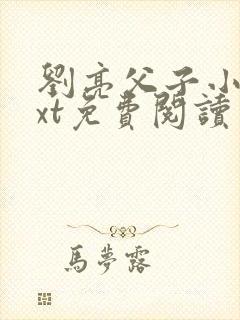 劉亮父子小
xt免費閱讀
馬夢露